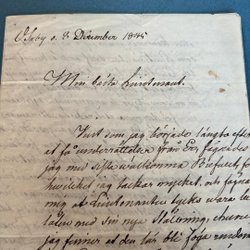 Wisby d. 3 December 1845
Min bästa Lieutenant.
Just som jag började längta efter
att få underrättelse från Er, fägnades
jag med sista välkomna Bref,
hvilket jag tackar mycket, och
mig at Lieutenanten tycks vara be
låten med sin nya Ställning; ehuru
jag finner at den lär bli